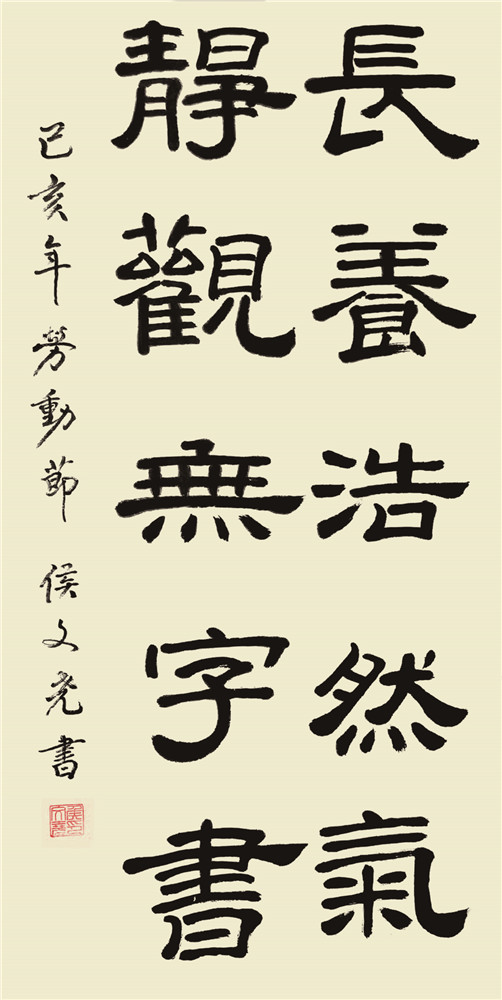 長養浩然氣
靜觀無字書
己亥年勞動節 侯文尧書